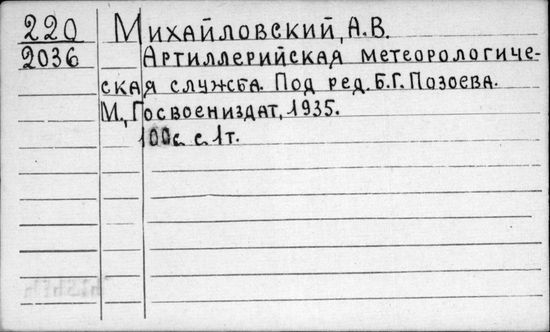 220 Михайловский, А.В.
2036 Артиллерийская метеорологиче-
ская служба. Под ред. Б.Г. Позоева.
М., Госвоениздат, 1935.
100с. с. 1т.